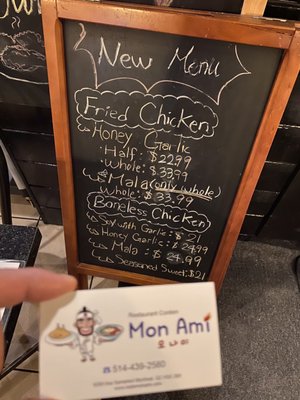 New Menu
Fried Chicken
Honey Garlic
Half: $22.99
Whole: $33.99
Mala (only whole)
Whole: $33.99
Boneless Chicken
Soy with Garlic: $21
Honey Garlic: $24.99
Mala: $24.99
Seasoned Sweet: $21
Restaurant Coréen
Mon Ami
모나미
514-439-2580